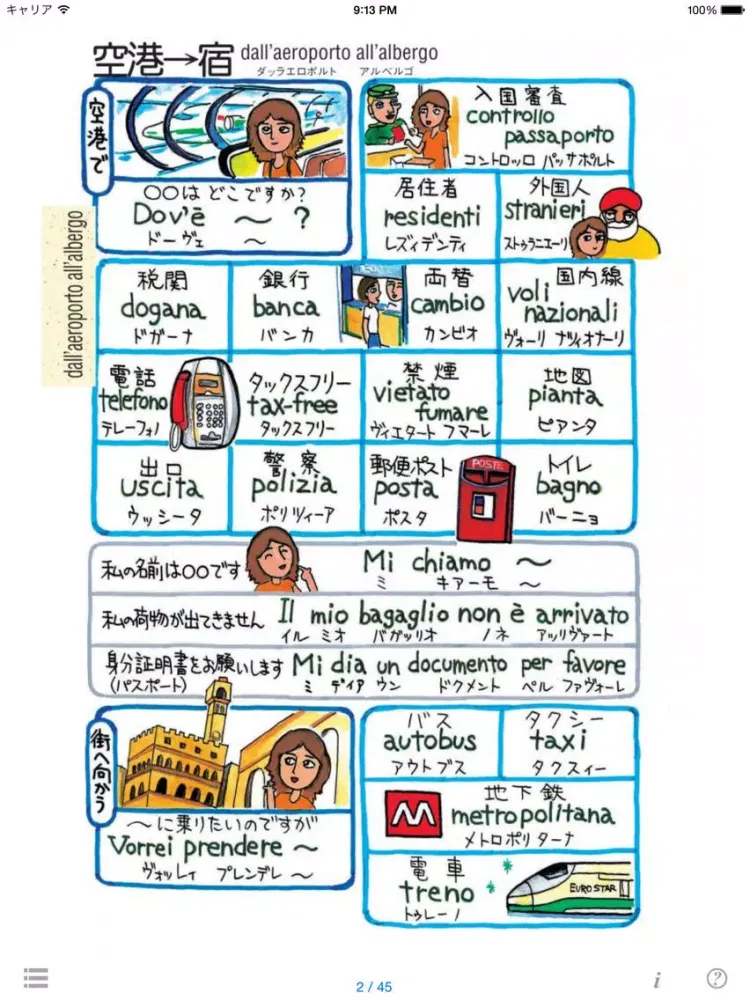 キャリア
9:13 PM
100%
空港→宿 dall'aeroporto all'albergo
ダッラエロポルト アルベルゴ
空港で
〇〇は どこですか?
Dov'è ～ ?
ドーヴェ ～
入国審査
controllo
passaporto
コントロッロ パッサポルト
居住者
residenti
レズィデンティ
外国人
stranieri
ストゥラニエーリ
dall'aeroporto all'albergo
税関
dogana
ドガーナ
銀行
banca
バンカ
両替
cambio
カンビオ
国内線
voli
nazionali
ヴォーリ ナツィオナーリ
電話
telefono
テレーフォノ
タックスフリー
tax-free
タックスフリー
禁煙
vietato
fumare
ヴィエタート フマーレ
地図
pianta
ピアンタ
出口
uscita
ウッシータ
警察
polizia
ポリツィーア
郵便ポスト
posta
ポスタ
POSTE
トイレ
bagno
バーニョ
私の名前は〇〇です
Mi chiamo ～
ミ キアーモ ～
私の荷物が出てきません
Il mio bagaglio non è arrivato
イル ミオ バガッリオ ノネ アッリヴァート
身分証明書をお願いします
(パスポート)
Mi dia un documento per favore
ミ ディア ウン ドクメント ペル ファヴォーレ
街へ向かう
～に乗りたいのですが
Vorrei prendere ～
ヴォッレイ プレンデレ ～
バス
autobus
アウトブス
タクシー
taxi
タクスィー
M
地下鉄
metropolitana
メトロポリターナ
電車
treno
トゥレーノ
EUROSTAR
2 / 45